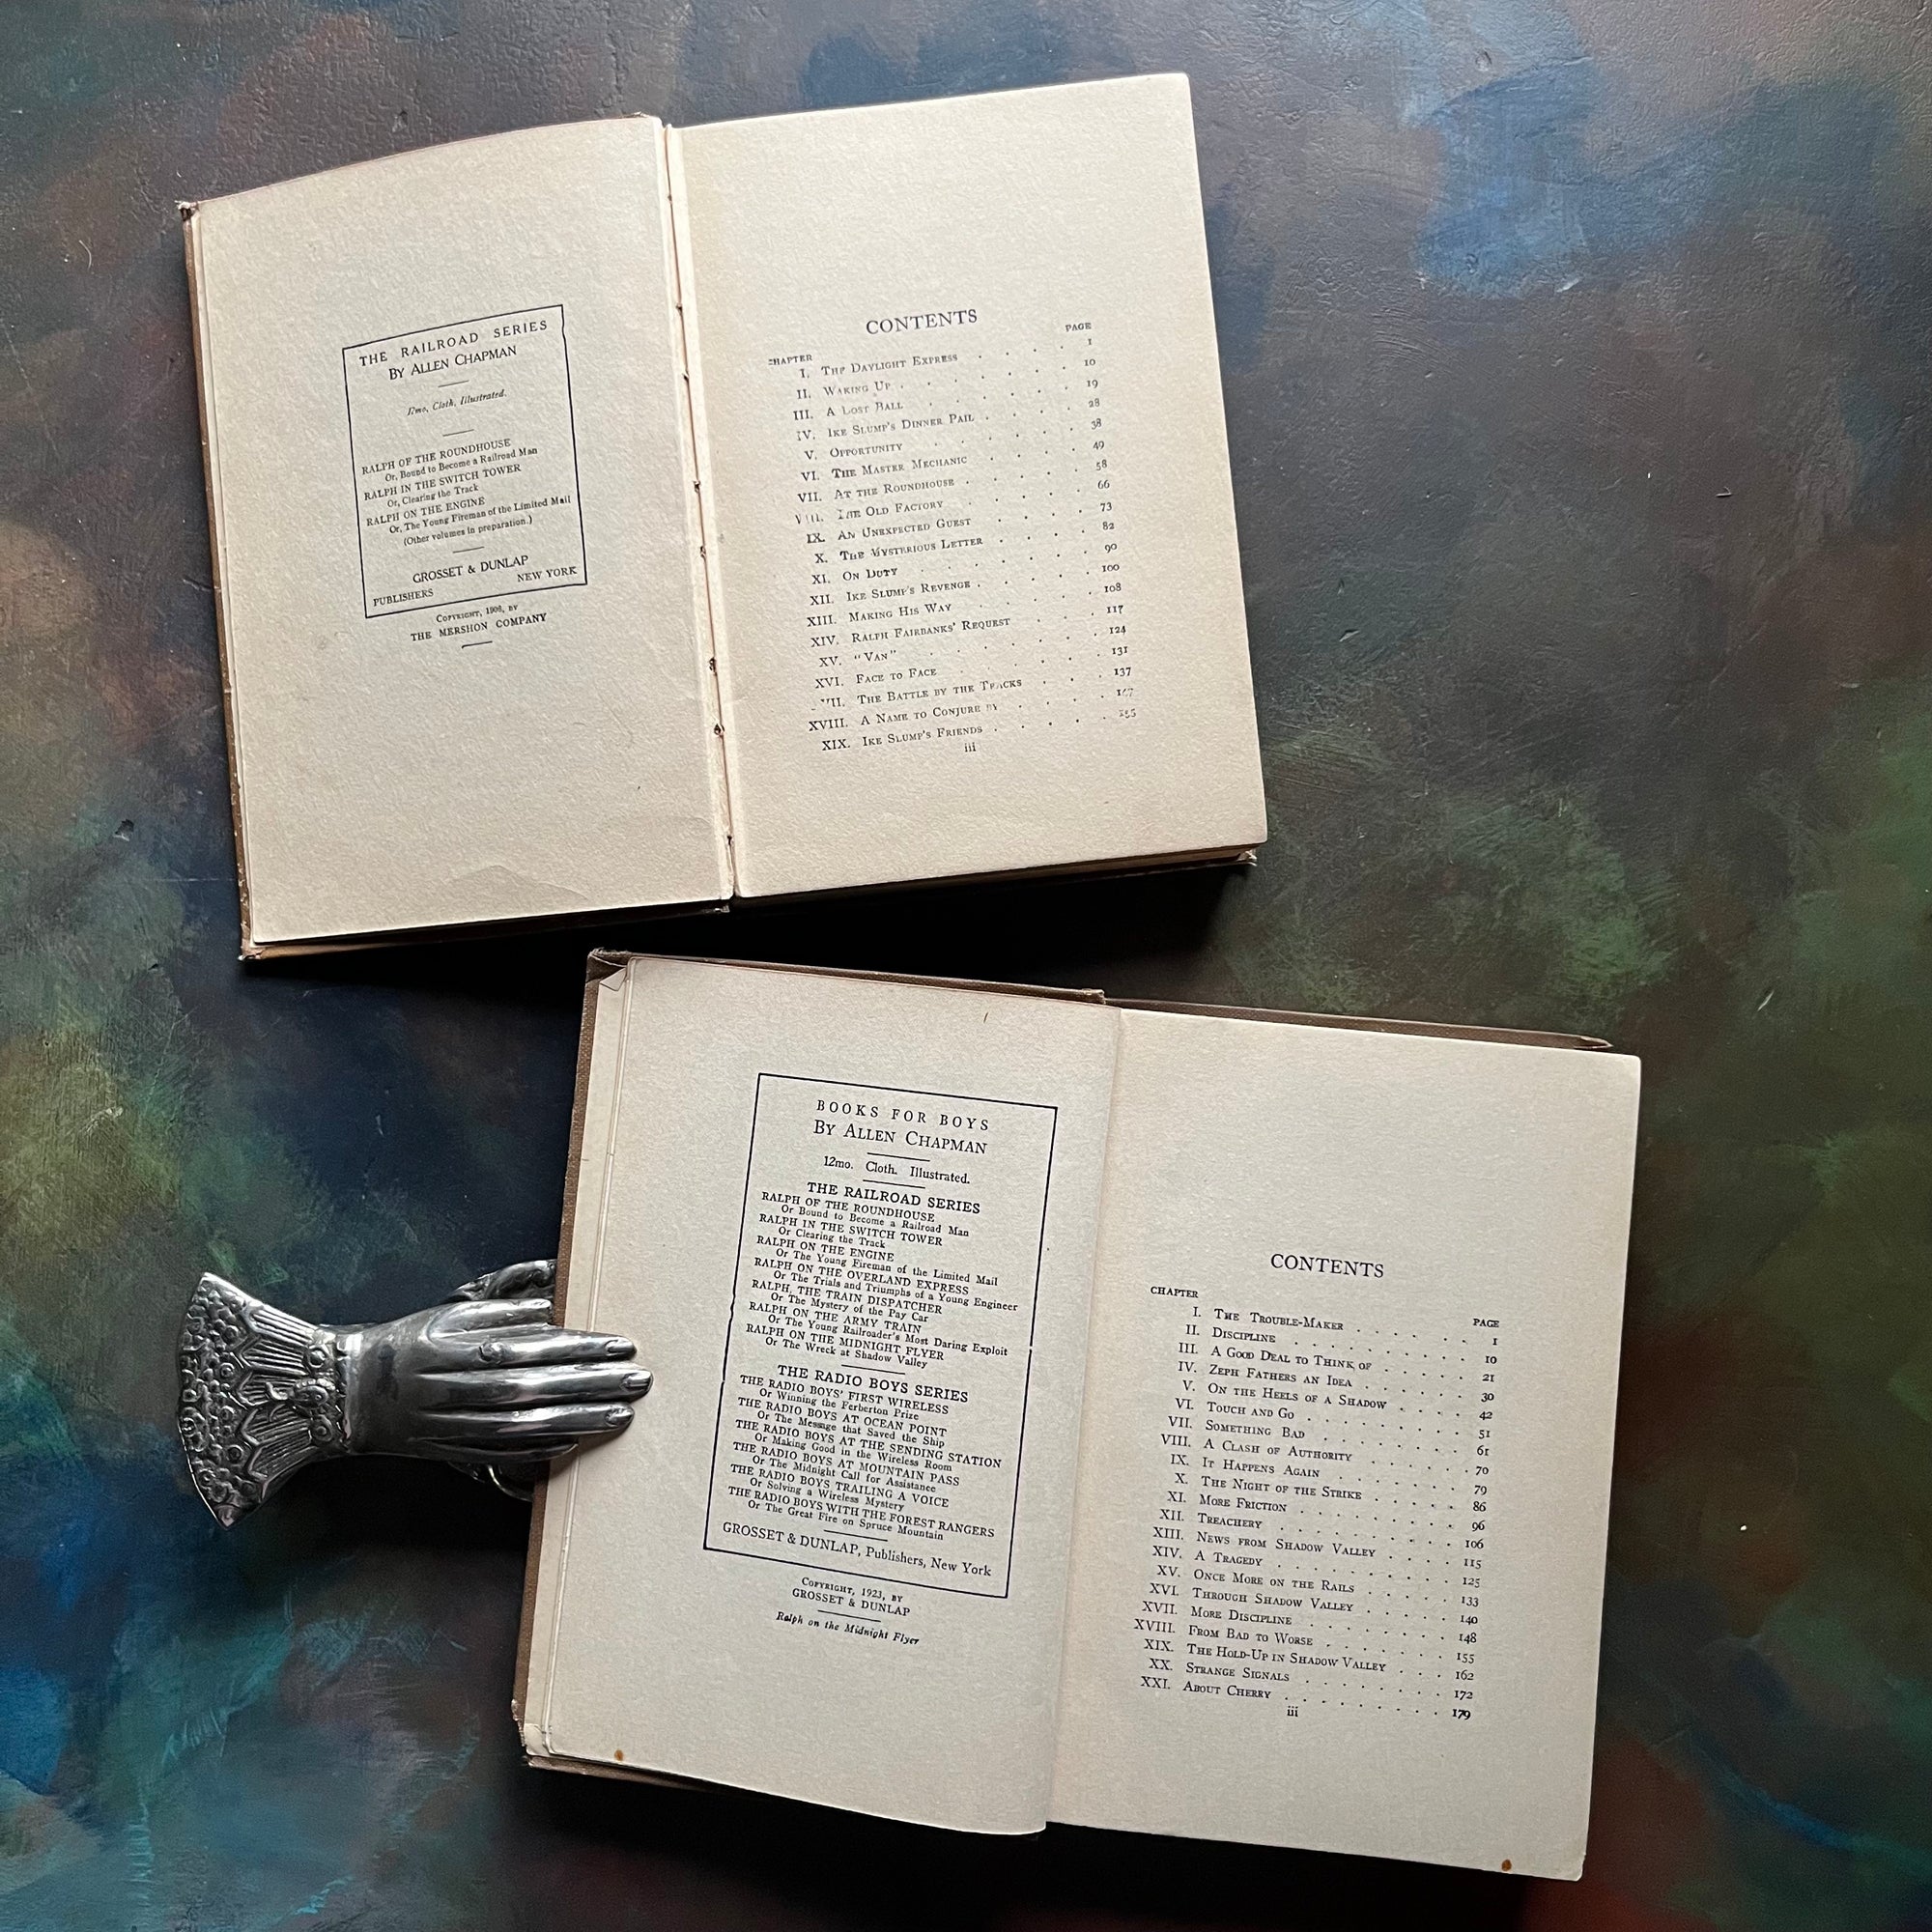 THE RAILROAD SERIES
BY ALLEN CHAPMAN
12mo, Cloth, Illustrated.
RALPH OF THE ROUNDHOUSE
Or, Bound to Become a Railroad Man
RALPH IN THE SWITCH TOWER
Or, Clearing the Track
RALPH ON THE ENGINE
Or, The Young Fireman of the Limited Mail
(Other volumes in preparation.)
GROSSET & DUNLAP
PUBLISHERS NEW YORK
COPYRIGHT, 1906, BY
THE MERSHON COMPANY
CONTENTS
CHAPTER PAGE
I. THE DAYLIGHT EXPRESS . . . . 1
II. WAKING UP . . . . . . 10
III. A LOST BALL . . . . . . 19
IV. IKE SLUMP'S DINNER PAIL . . . . 28
V. OPPORTUNITY . . . . . . 38
VI. THE MASTER MECHANIC . . . . 49
VII. AT THE ROUNDHOUSE . . . . . 58
VIII. THE OLD FACTORY . . . . . 66
IX. AN UNEXPECTED GUEST . . . . 73
X. THE MYSTERIOUS LETTER . . . . 82
XI. ON DUTY . . . . . . 90
XII. IKE SLUMP'S REVENGE . . . . . 100
XIII. MAKING HIS WAY . . . . . 108
XIV. RALPH FAIRBANKS' REQUEST . . . 117
XV. "VAN" . . . . . . 124
XVI. FACE TO FACE . . . . . 131
XVII. THE BATTLE BY THE TRACKS . . . 137
XVIII. A NAME TO CONJURE BY . . . . 147
XIX. IKE SLUMP'S FRIENDS . . . . . 155
iii
BOOKS FOR BOYS
BY ALLEN CHAPMAN
12mo. Cloth. Illustrated.
THE RAILROAD SERIES
RALPH OF THE ROUNDHOUSE
Or Bound to Become a Railroad Man
RALPH IN THE SWITCH TOWER
Or Clearing the Track
RALPH ON THE ENGINE
Or The Young Fireman of the Limited Mail
RALPH ON THE OVERLAND EXPRESS
Or The Trials and Triumphs of a Young Engineer
RALPH, THE TRAIN DISPATCHER
Or The Mystery of the Pay Car
RALPH ON THE ARMY TRAIN
Or The Young Railroader's Most Daring Exploit
RALPH ON THE MIDNIGHT FLYER
Or The Wreck at Shadow Valley
THE RADIO BOYS SERIES
THE RADIO BOYS' FIRST WIRELESS
Or Winning the Ferberton Prize
THE RADIO BOYS AT OCEAN POINT
Or The Message that Saved the Ship
THE RADIO BOYS AT THE SENDING STATION
Or Making Good in the Wireless Room
THE RADIO BOYS AT MOUNTAIN PASS
Or The Midnight Call for Assistance
THE RADIO BOYS TRAILING A VOICE
Or Solving a Wireless Mystery
THE RADIO BOYS WITH THE FOREST RANGERS
Or The Great Fire on Spruce Mountain
GROSSET & DUNLAP, Publishers, New York
COPYRIGHT, 1923, BY
GROSSET & DUNLAP
Ralph on the Midnight Flyer
CONTENTS
CHAPTER PAGE
I. THE TROUBLE-MAKER . . . . . . 1
II. DISCIPLINE . . . . . . . . 10
III. A GOOD DEAL TO THINK OF . . . . . 21
IV. ZEPH FATHERS AN IDEA . . . . . . 30
V. ON THE HEELS OF A SHADOW . . . . 42
VI. TOUCH AND GO . . . . . . . 51
VII. SOMETHING BAD . . . . . . . 61
VIII. A CLASH OF AUTHORITY . . . . . 70
IX. IT HAPPENS AGAIN . . . . . . 79
X. THE NIGHT OF THE STRIKE . . . . . 86
XI. MORE FRICTION . . . . . . . 96
XII. TREACHERY . . . . . . . . 106
XIII. NEWS FROM SHADOW VALLEY . . . . 115
XIV. A TRAGEDY . . . . . . . . 125
XV. ONCE MORE ON THE RAILS . . . . . 133
XVI. THROUGH SHADOW VALLEY . . . . . 140
XVII. MORE DISCIPLINE . . . . . . . 148
XVIII. FROM BAD TO WORSE . . . . . . 155
XIX. THE HOLD-UP IN SHADOW VALLEY . . . 162
XX. STRANGE SIGNALS . . . . . . . 172
XXI. ABOUT CHERRY . . . . . . . 179
iii